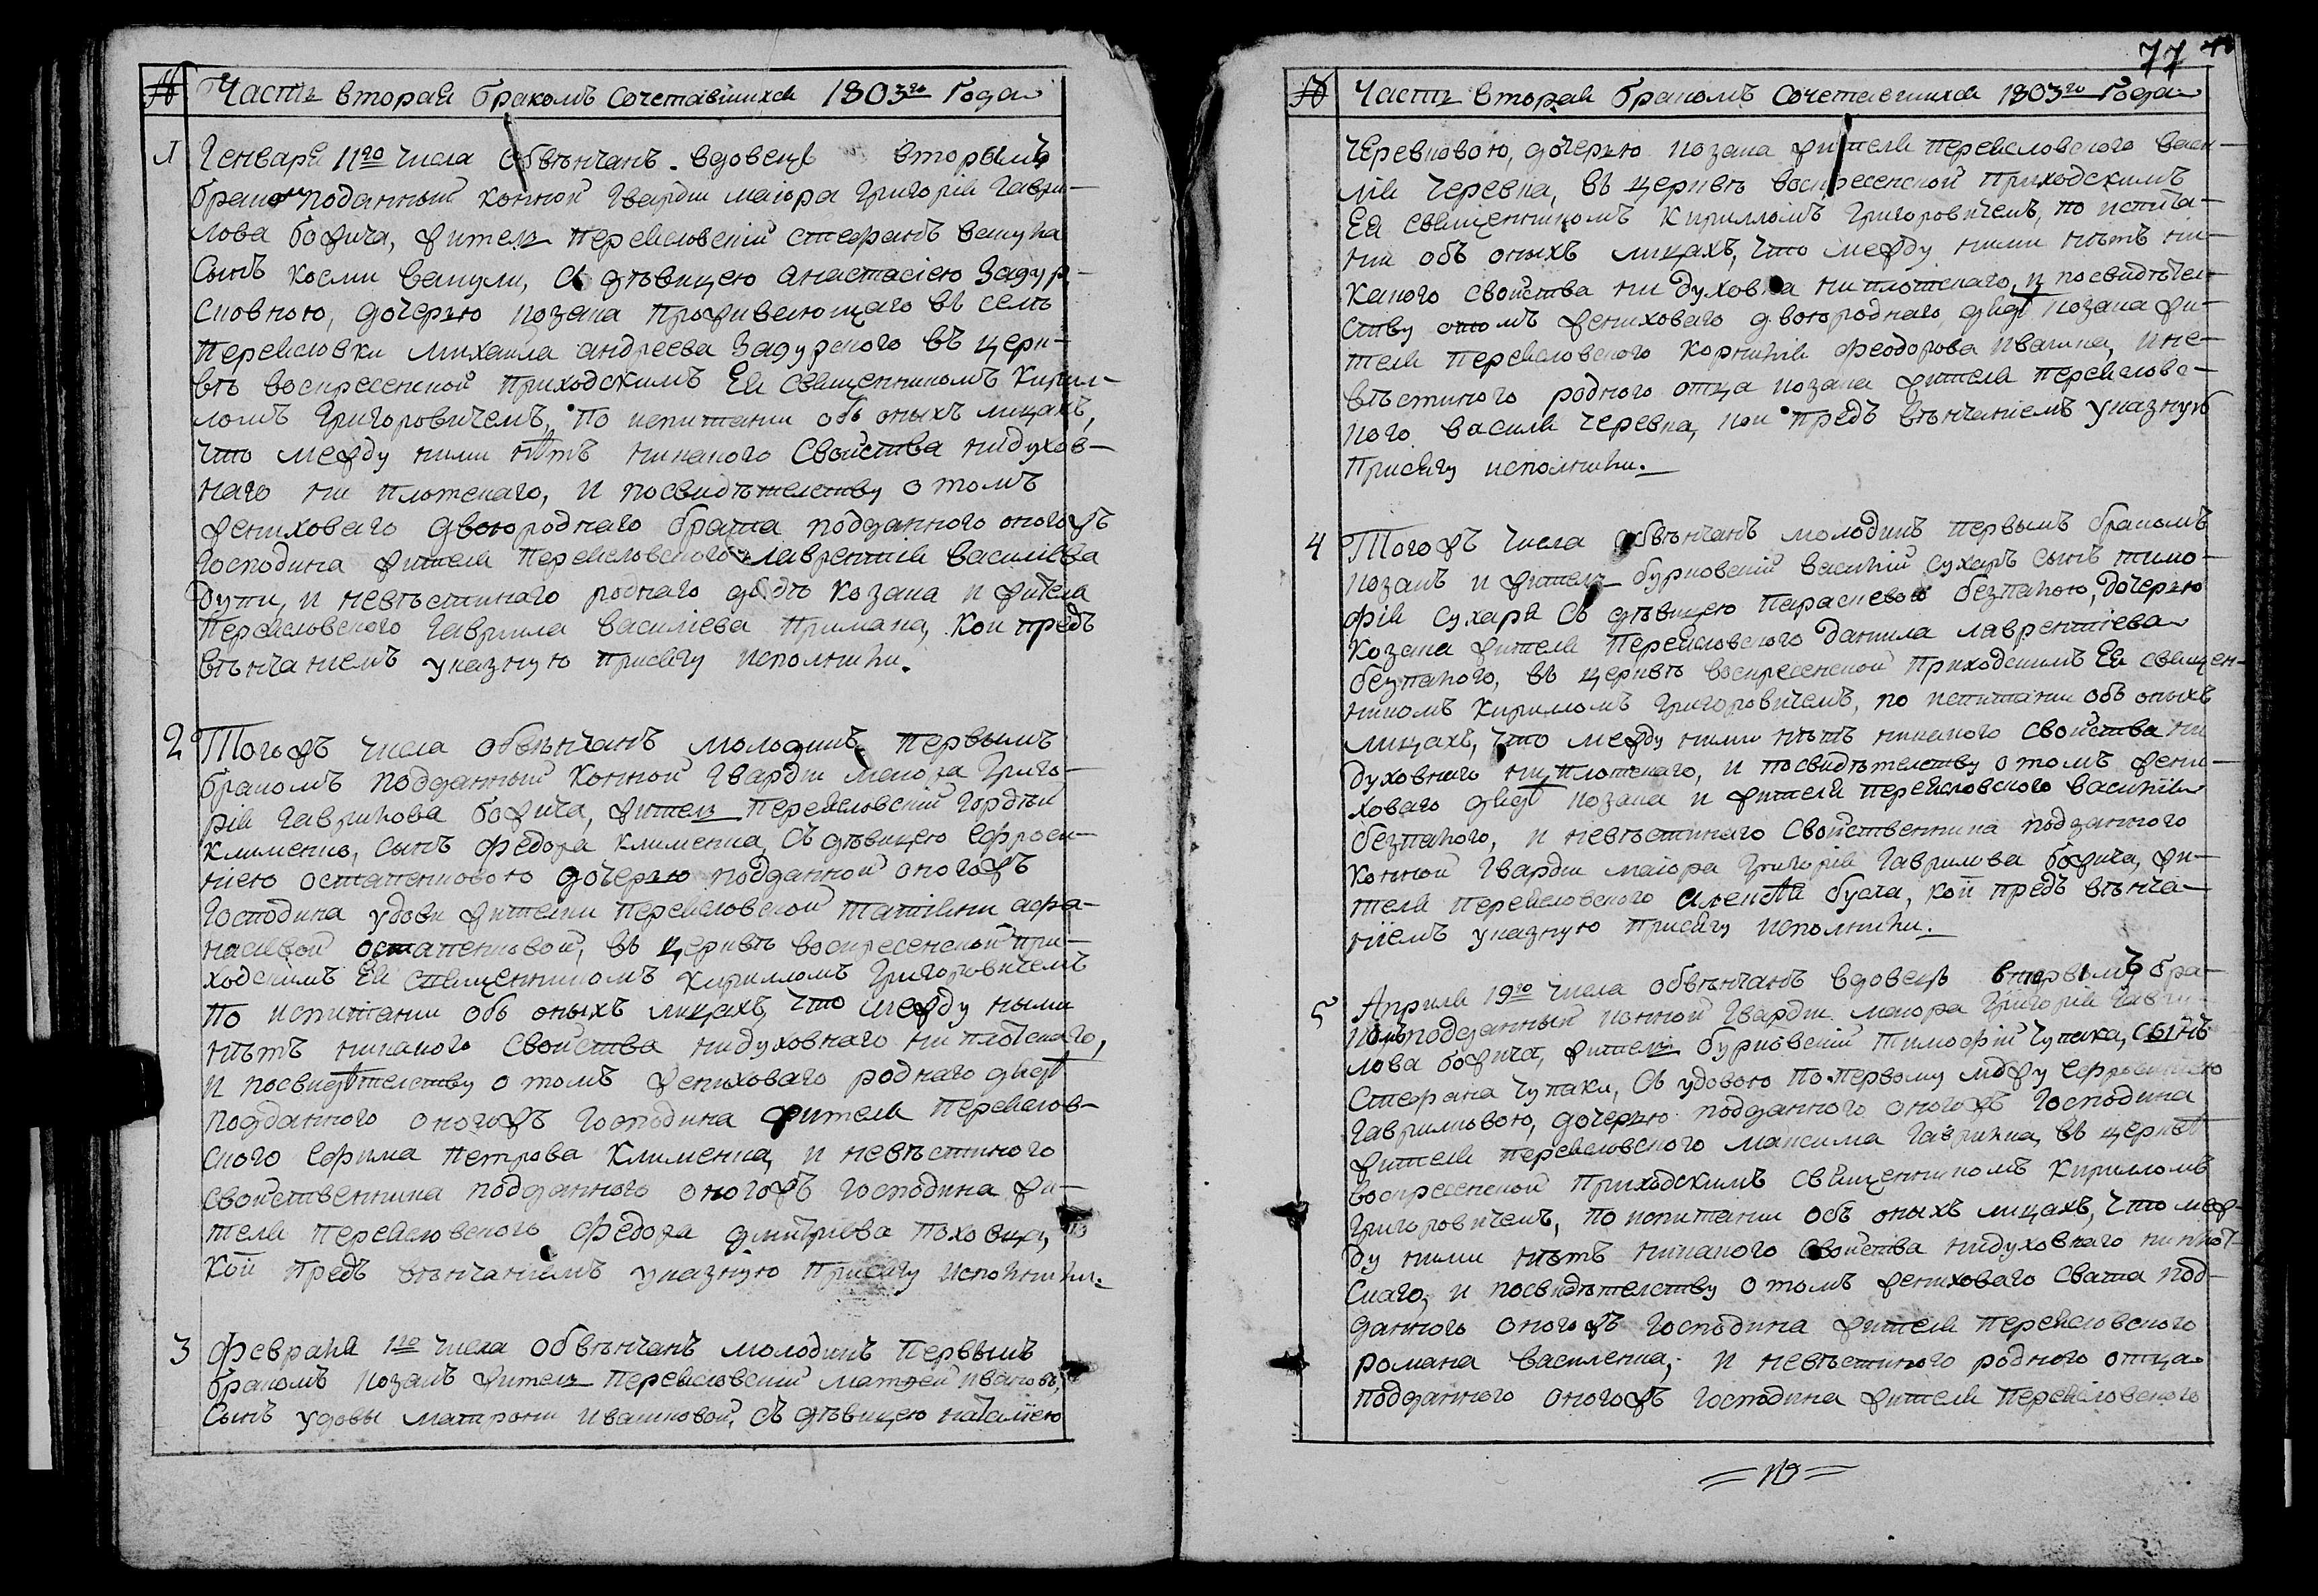 № Часть вторая бракомъ сочетавшихся 1803го Года
1 Генваря 11го числа обвѣнчанъ вдовецъ вторымъ
бракомъ подданный конной гвардіи маіора Григорія Гаври-
лова божича, житель переясловскій стефанъ
Сынъ козми, съ дѣвицею анастасіею Задур-
сковною, дочерью козака проживающаго въ селѣ
переясловки михаила андреева Задурского въ церк-
вѣ воскресенской приходскимъ Ея священникомъ кирил-
ломъ Григоровичемъ, по испитании объ оныхъ лицахъ,
что между ними нѣтъ никакого свойства нидухов-
наго ни плотскаго, и посвидѣтелству о томъ
жениховаго двоюроднаго брата подданного оногожъ
Господина жителя переясловского лаврентія василіева
дупи, и невѣстинаго роднаго дядѣ козака и жителя
переясловского гавриила василіева примака, кои предъ
вѣнчаніемъ указную присягу исполнили.
2 Тогожъ числа обвѣнчанъ молодикъ первымъ
бракомъ подданный конной гвардіи маіора Григо-
рія гаврилова божича, житель переясловскій гордѣй
клименко, сынъ федора клименка, съ дѣвицею ефроси-
ніею остапенковою дочерью подданной оногожъ
Господина удови жителки переясловской татіяни афа-
насіевой остапенковой, въ церквѣ воскресенской при-
ходскимъ Ея священникомъ кирилломъ Григоровичемъ
по испитании объ оныхъ лицахъ, что между ными
нѣтъ никакого свойства нидуховнаго ни плотскаго,
и посвидѣтелству о томъ жениховаго роднаго дядѣ
подданного оногожъ господина жителя переяслов-
ского ефима петрова клименка, и невѣстиного
свойственника подданного оногожъ господина жи-
теля переясловского федора дмитріева
кои предъ вѣнчаніемъ указную присягу исполнили.
3 февраля 1го числа обвѣнчанъ молодикъ первымъ
бракомъ козакъ житель переясловскій матвей ивашко,
Сынъ удовы матрони ивашковой, съ дѣвицею наталіею
77
№ Часть вторая бракомъ сочетавшихся 1803го Года
черевковою, дочерью козака жителя переясловского васи-
лія черевка, въ церквѣ воскресенской приходскимъ
Ея священникомъ кирилломъ Григоровичемъ, по испита-
нии объ оныхъ лицахъ, что между ними нѣтъ ни-
какого свойства ни духовна ни плотскаго, и посвидѣтел-
ству о томъ жениховаго двоюроднаго дядѣ козака жи-
теля переясловского корнилія феодорова ивашка, и не-
вѣстиного родного отца козака жителя переяслов-
кого василя черевка, кои предъ вѣнчаніемъ указную
присягу исполнили.
4 Тогожъ числа обвѣнчанъ молодикъ первымъ бракомъ
козакъ и житель бурковскій василій сухаръ сынъ тимо-
фія сухаря съ дѣвицею параскевою безпалою, дочерью
козака жителя переясловского данила лаврентіева
безпалого, въ церквѣ воскресенской приходскимъ Ея священ-
никомъ кирилломъ григоровичемъ, по испитании объ оныхъ
лицахъ, что между ними нѣтъ никакого свойства ни
духовнаго ни плотскаго, и посвидѣтелству о томъ жени-
ховаго дядѣ козака и жителя переясловского василія
безпалого, и невѣстинаго свойственника подданного
конной гвардіи маіора григорія гаврилова божича, жи-
теля переясловского алексѣя бусла, кои предъ вѣнча-
ніемъ указную присягу исполнили.
5 Априля 19го числа обвѣнчанъ вдовецъ вторымъ бра-
комъ подданный конной гвардіи маіора григорія гаври-
лова божича, житель бурковскій тимофій чупака, сынъ
стефана чупаки, съ удовою по первому мужу ефросиніею
гавриловою, дочерью подданного оногожъ господина
жителя переясловского максима гаврилка, въ церквѣ
воскресенской приходскимъ священникомъ кирилломъ
григоровичемъ, по испитании объ оныхъ лицахъ, что меж-
ду ними нѣтъ никакого свойства нидуховнаго ни плот-
скаго, и посвидѣтелству о томъ жениховаго свата под-
данного оногожъ господина жителя переясловского
романа василенка, и невѣстиного родного отца
подданного оногожъ господина жителя переясловского